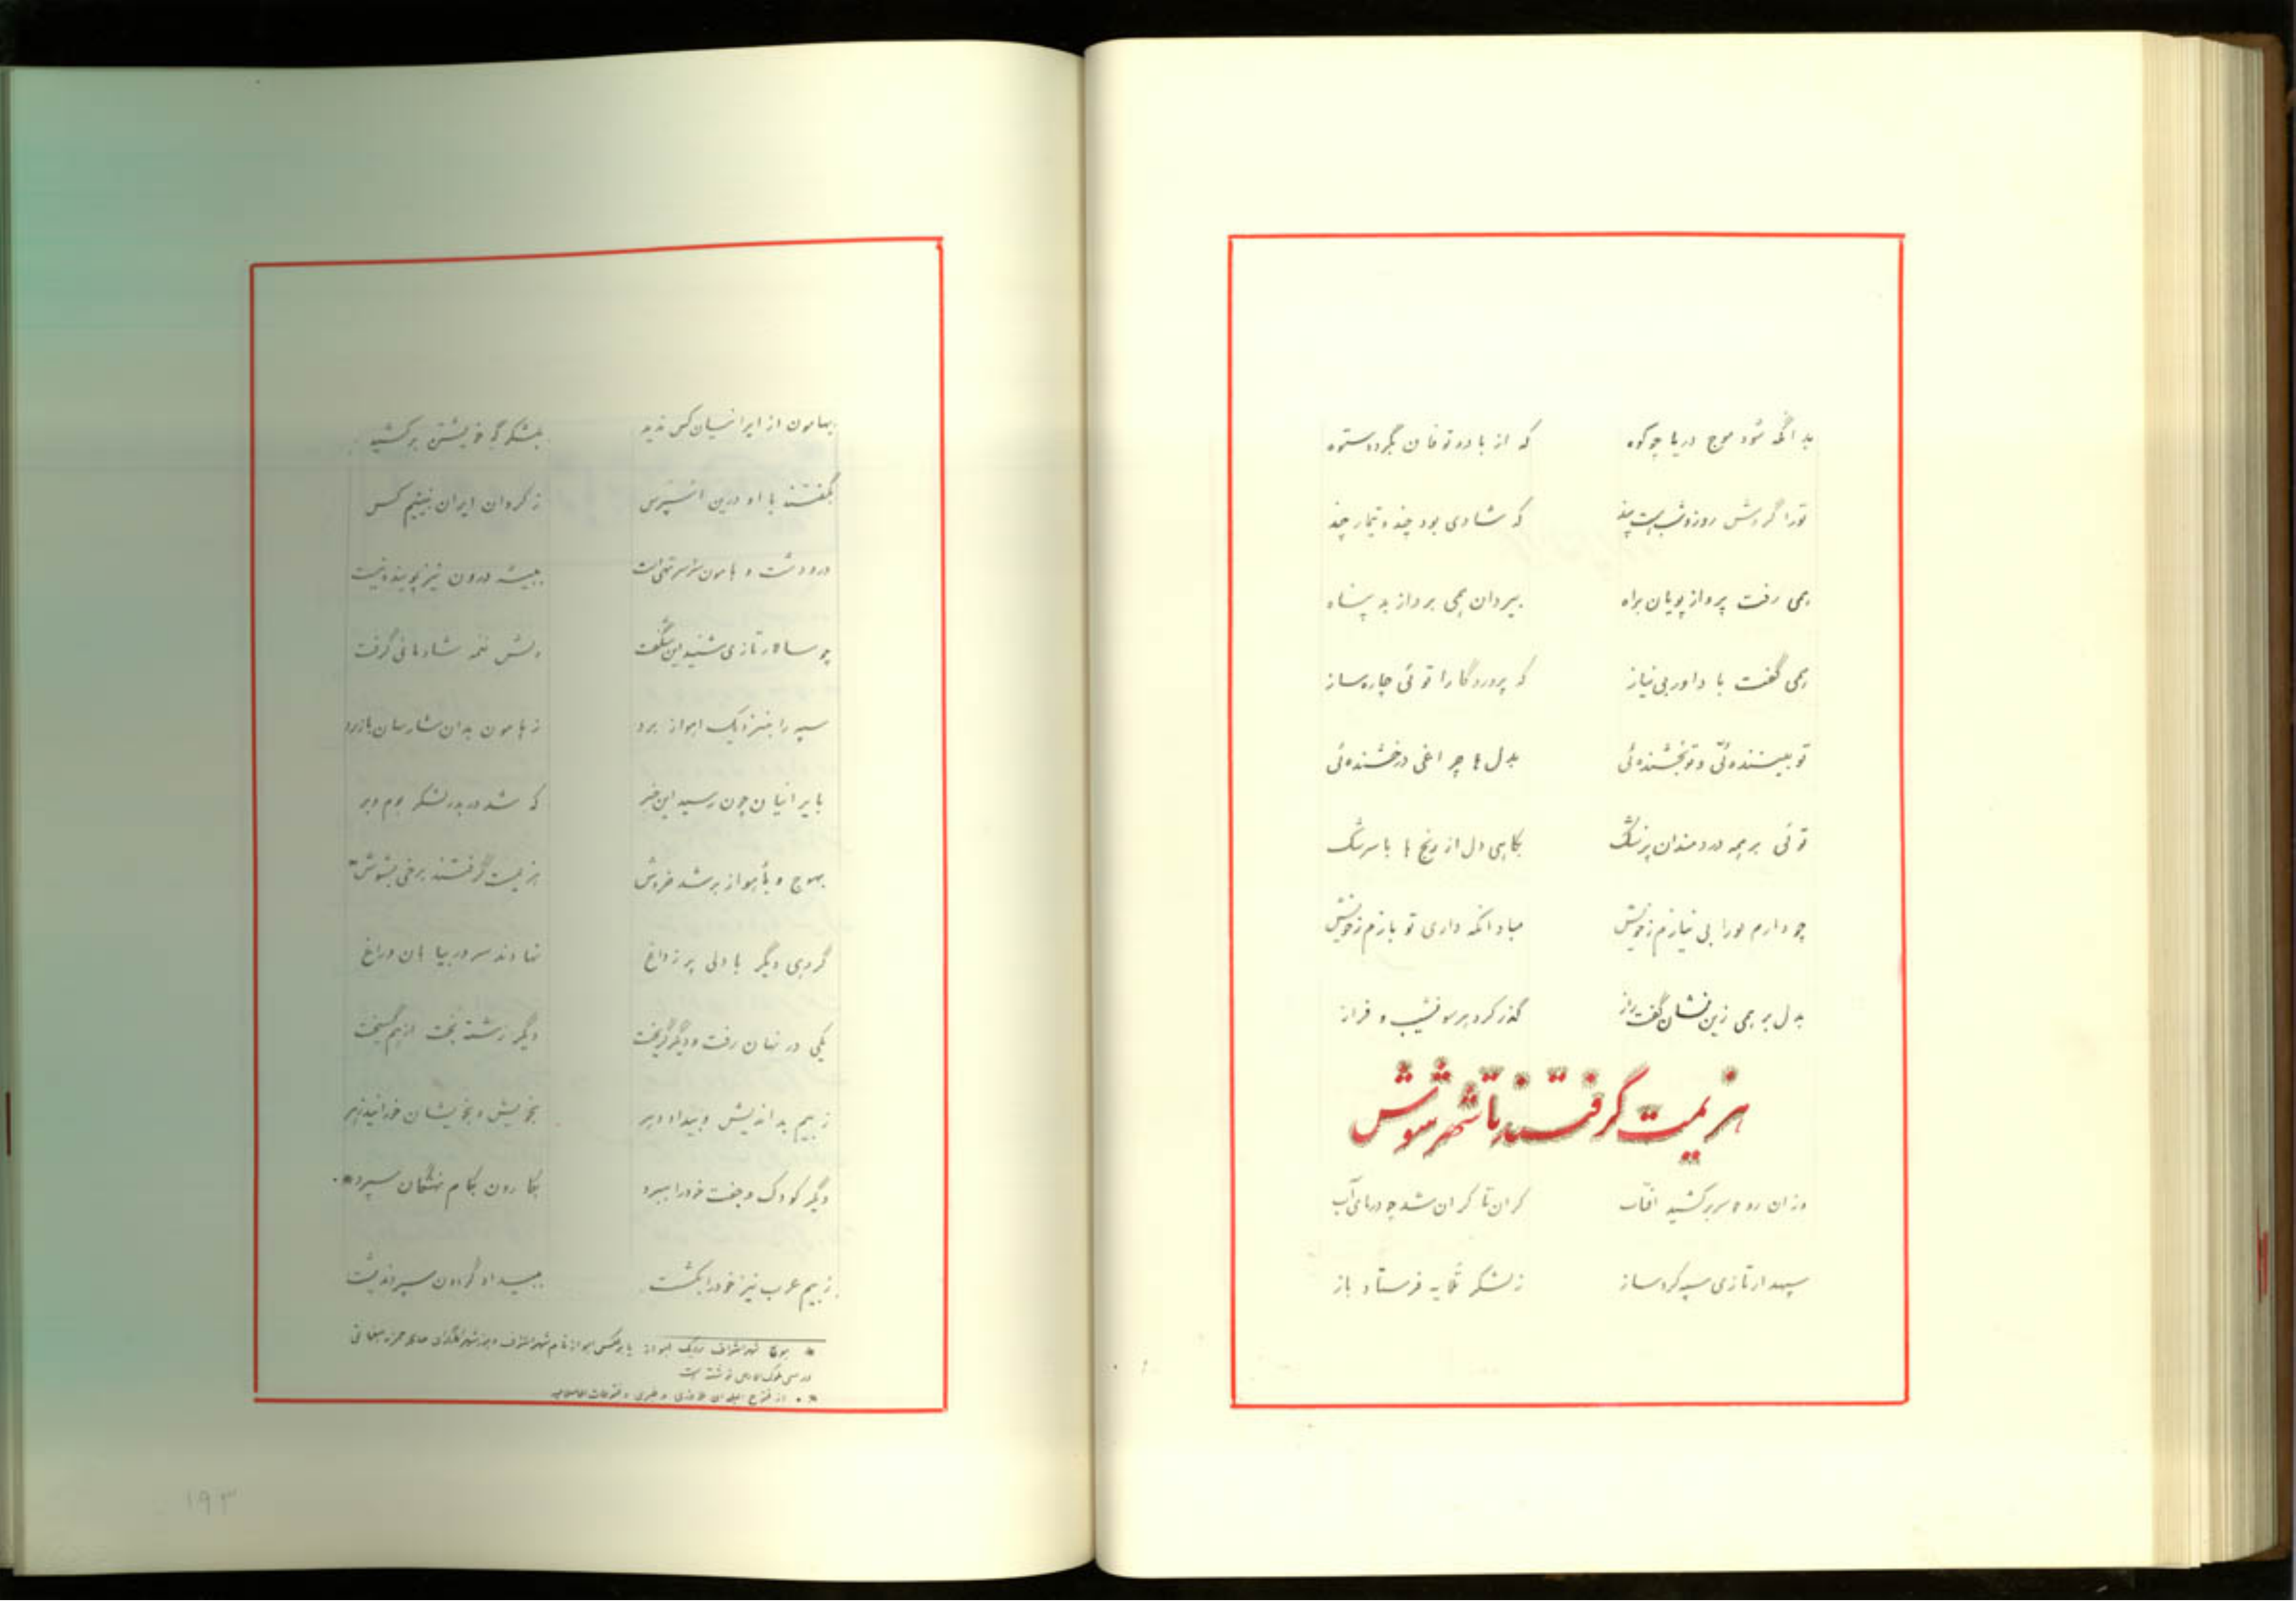 بدانگه شود موج دریا چو کوه که از باد و توفان بگردد ستوه
تو را گردش روز و شب هست پند که شادی بود چند و تیمار چند
همی رفت پرواز پویان براه بیزدان همی برد از بد پناه
همی گفت با داور بی نیاز که پروردگارا توئی چاره ساز
تو بیننده‌ئی و تو بخشنده‌ئی بدل ها چراغی درخشنده‌ئی
توئی بر همه دردمندان پزشک بکاهی دل از رنج ها با سرشک
چو دارم تو را بی نیازم ز خویش مبادانکه داری تو بازم ز خویش
بدل بر همی زین نشان گفت راز گذر کرد هر سو نشیب و فراز
هزیمت گرفتند تا شهر شوش
وزان رو سر بر کشید آفتاب کران تا کران شد چو دریای آب
سپهدار تازی سپه کرد ساز ز لشکر طلایه فرستاد باز
بهامون از ایرانیان کس ندید بلشکرگه خویشتن برکشید
بگفتند با او درین از گردان ایران نبینیم کس
در و دشت و هامون سراسر تهی است ببیشه درون نیز پوینده نیست
چو سالار تازی شنید این شگفت دلش نغمه شادمانی گرفت
سپه را بنزدیک اهواز برد ز هامون بدان شارسان باز برد
بایرانیان چون رسید این خبر که شد در بدر لشکر بوم و بر
بهوج و بأهواز بر شد خروش هزیمت گرفتند برخی بشوش*
گروهی دیگر با دلی پر ز داغ نهادند سر در بیابان و راغ
یکی در نهان رفت و دیگر گریخت دگر رشته بخت از هم گسیخت
ز بیم بداندیش و بیداد دهر بخویش و بخویشان خورانید زهر
دگر کودک و جفت خود را ببرد بکارون بکام نهنگان سپرد**
ز بیم عرب نیز خود را بکشت ببیداد گردون سپر
* هوج شهر اشراف نزدیک اهواز یا برعکس اهواز نام شهر اشراف و هوج شهر حمزه اصفهانی
در سنی ملوک الارض نوشته است
** از فتوح البلدان بلاذری و طبری و فتوحات اسلامیه
۱۹۳